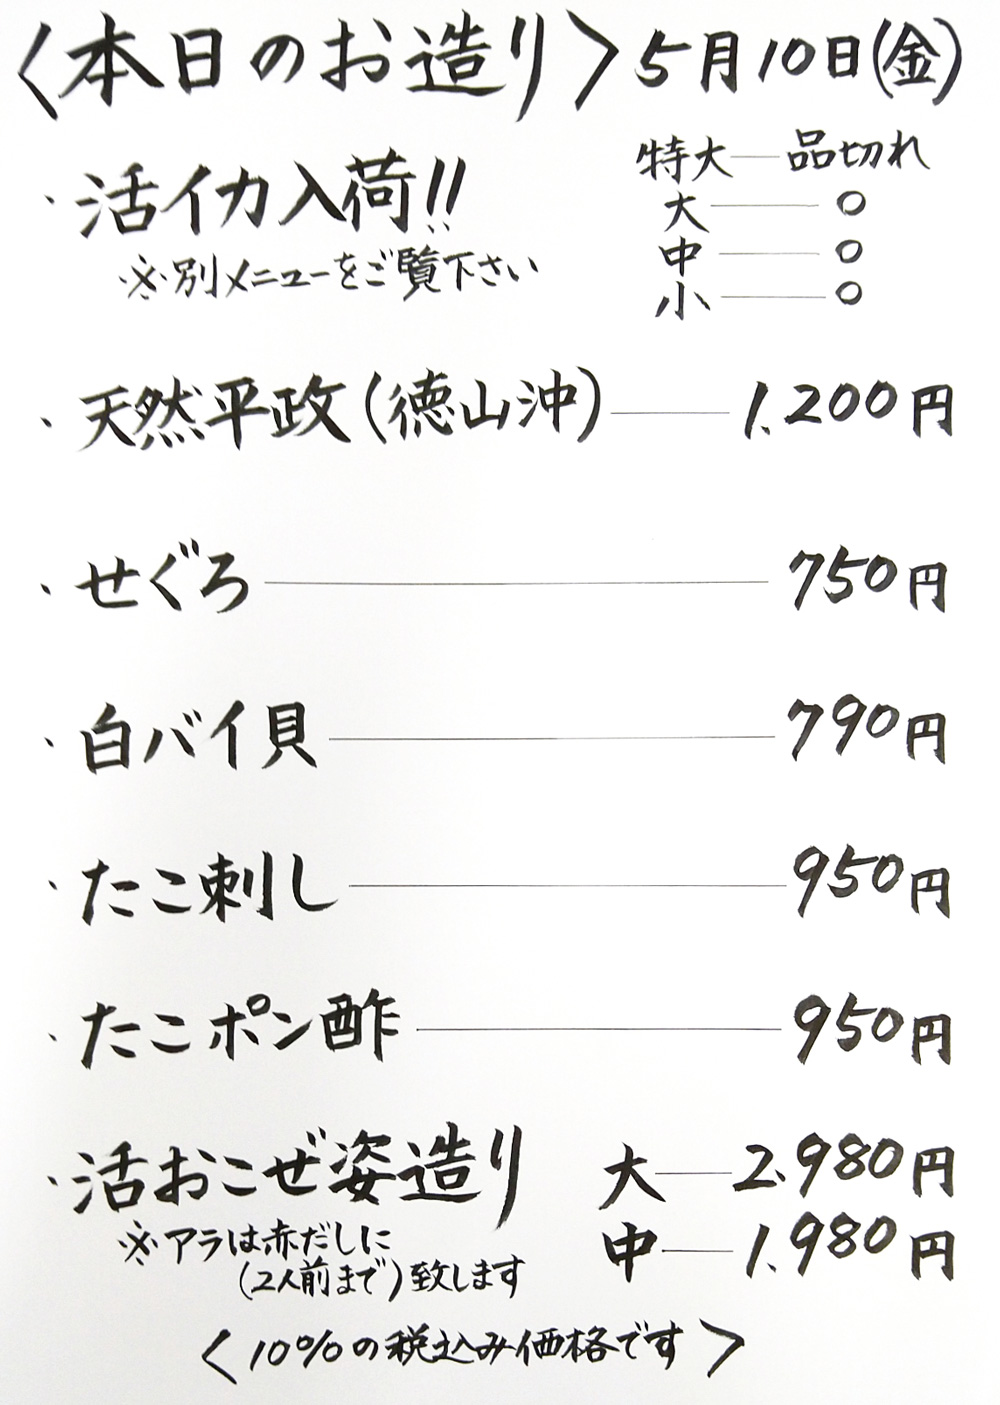 〈本日のお造り〉5月10日(金)
・活イカ入荷!!
※別メニューをご覧下さい
特大―品切れ
大―○
中―○
小―○
・天然平政(徳山沖)―1,200円
・せぐろ―750円
・白バイ貝―790円
・たこ刺し―950円
・たこポン酢―950円
・活おこぜ姿造り 大―2,980円
中―1,980円
※アラは赤だしに
(2人前まで)致します
〈10%の税込み価格です〉